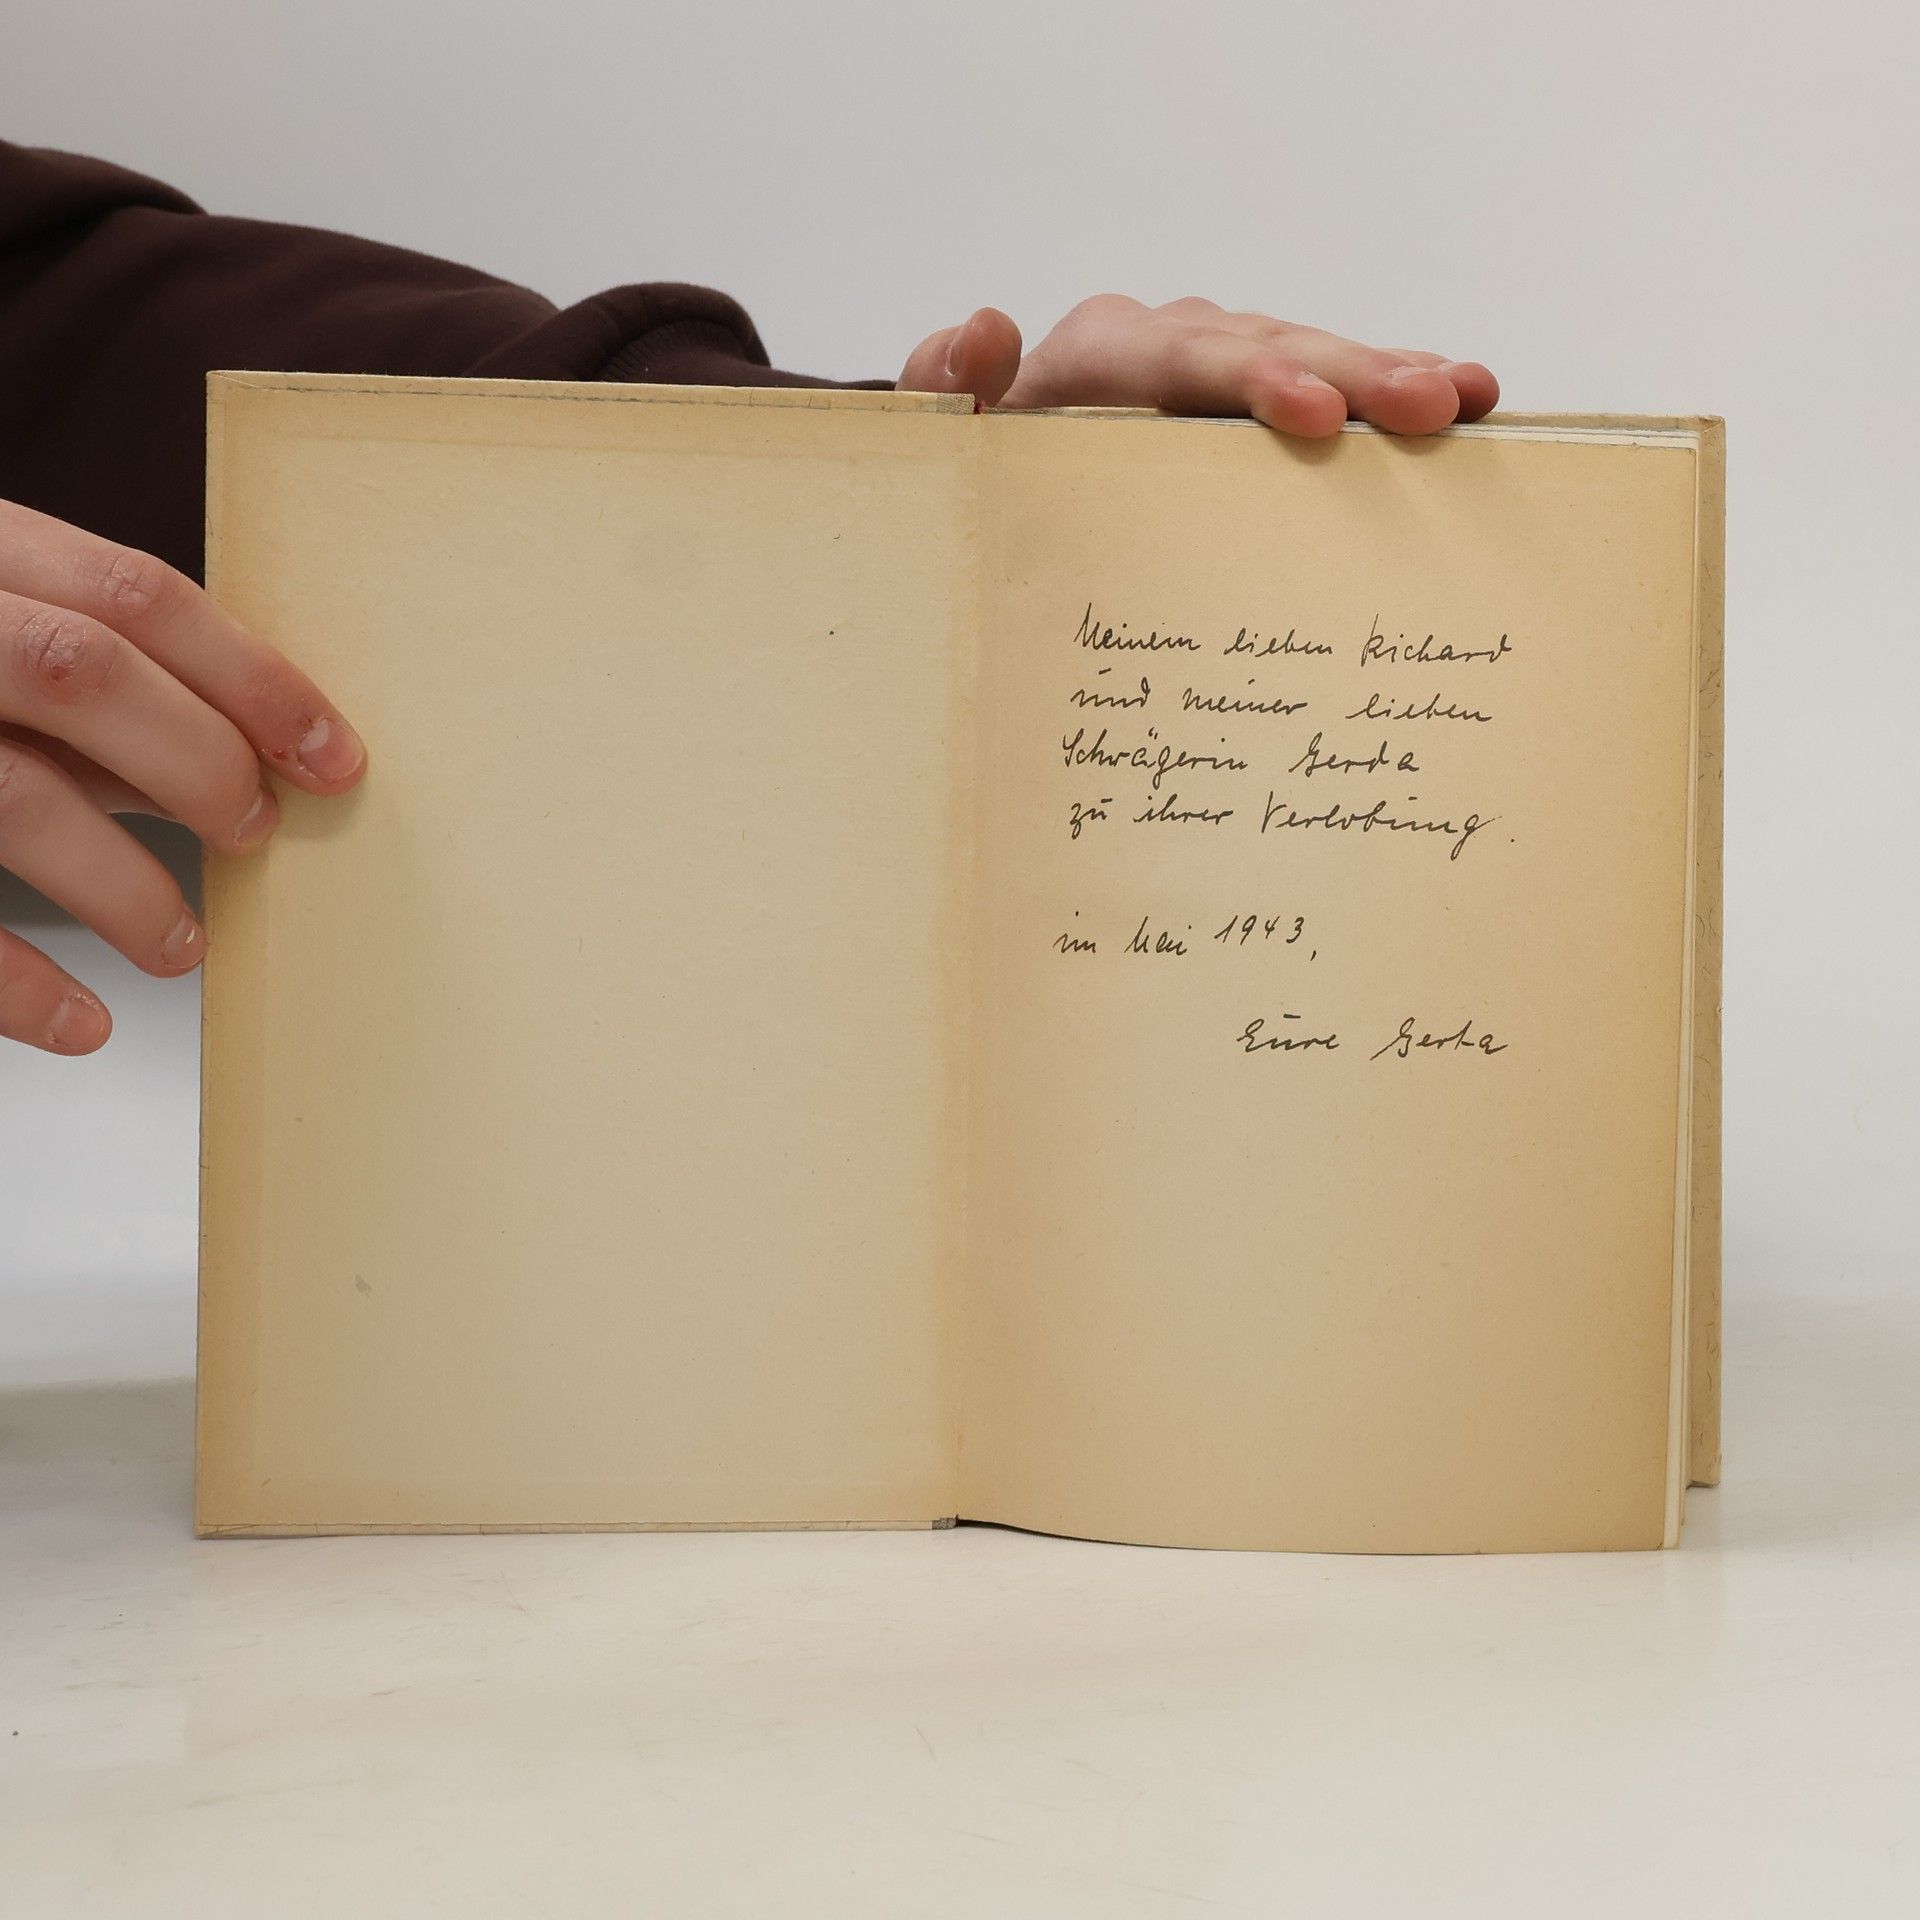 Meinem lieben Richard
und meiner lieben
Schwägerin Gerda
zu ihrer Verlobung.
im Mai 1943,
Eure Gerta